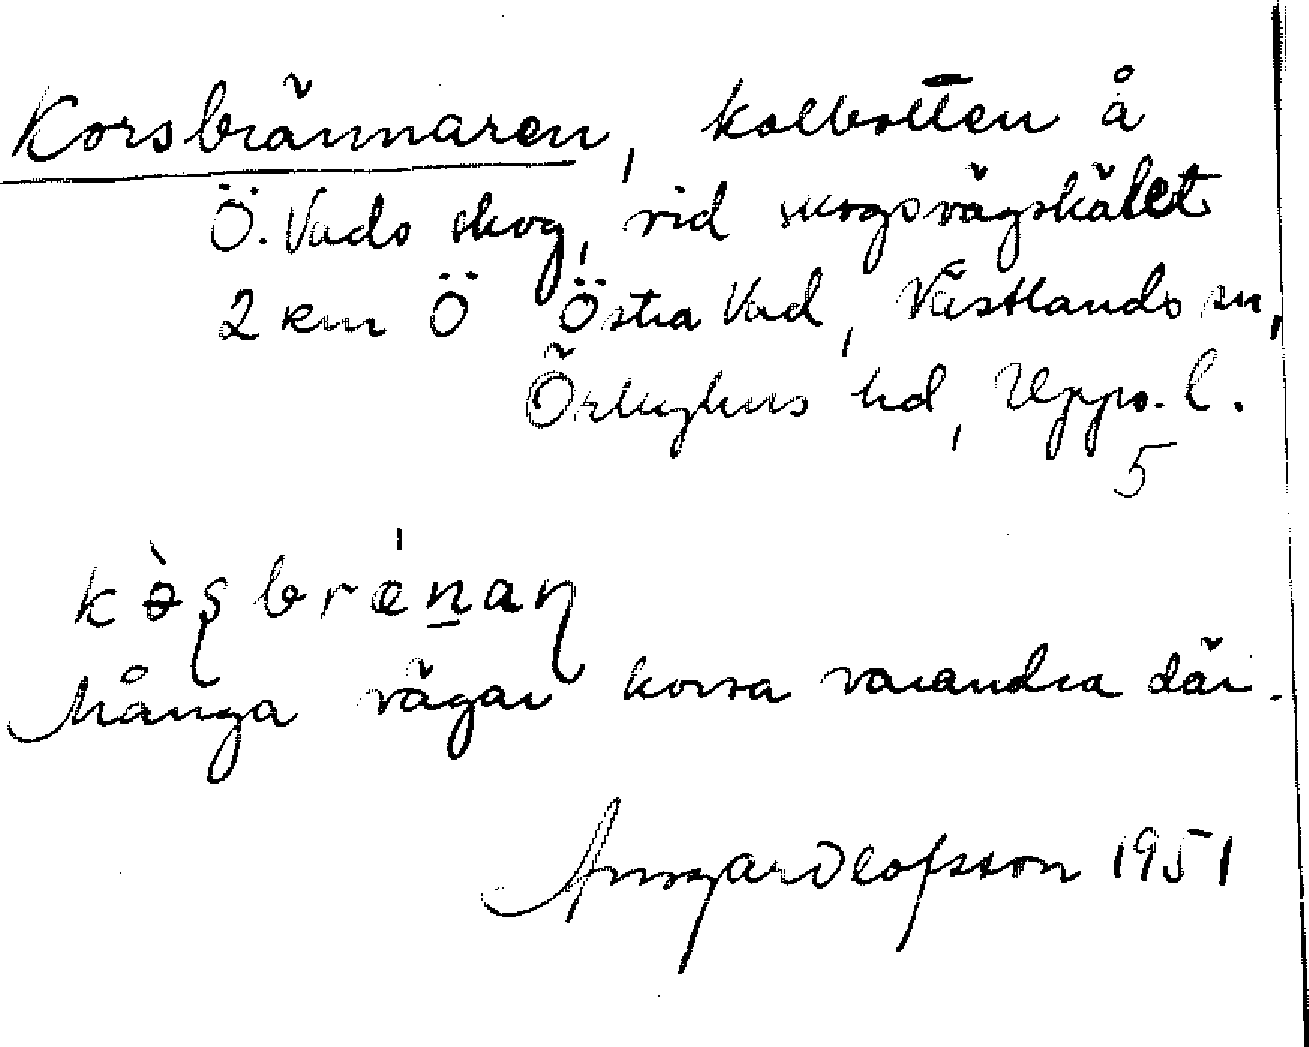 Korsbrännaren, kolbotten å
Ö. Vads skog, vid skogsvägskälet
2 km Ö Östra Vad, Västlands sn,
Örbyhus hd, Upps. l.
5
kɵ̀ʂbrénaɳ
Många vägar korsa varandra där.
Ansgar Olofsson 1951